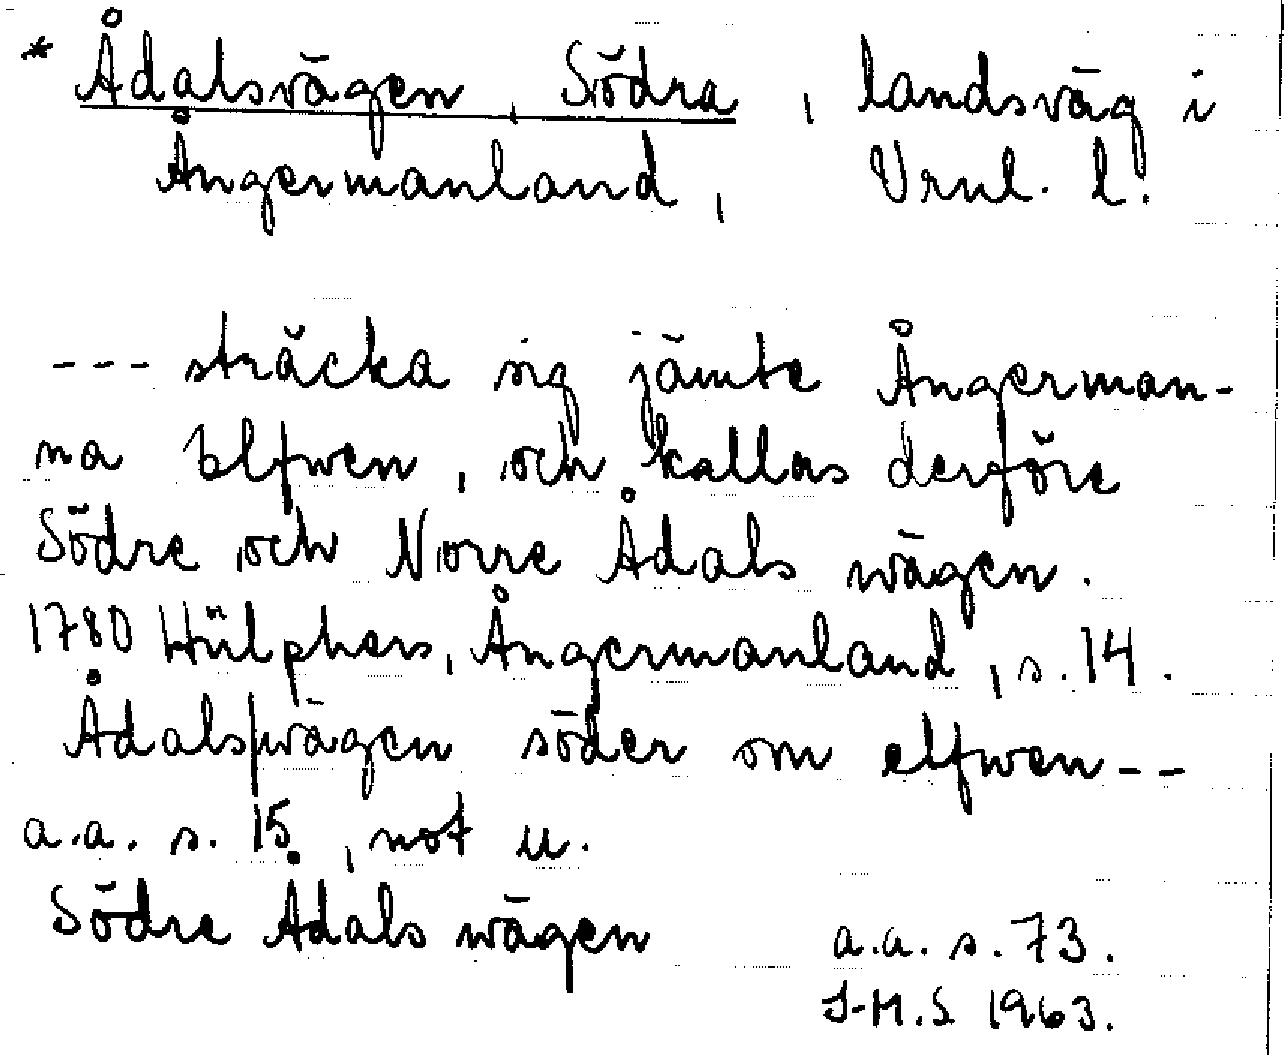 * Ådalsvägen, Södra, landsväg i
Ångermanland, Vrnl. l.
--- sträcka sig jämte Ångerman-
na Elfwen, och kallas derföre
Södre och Norre Ådals wägen.
1780 Hülphers, Ångermanland, s. 14.
Ådals|wägen söder om elfwen--
a.a. s. 15, not u.
Södre Ådals wägen a.a. s. 73.
J-M.S 1963.